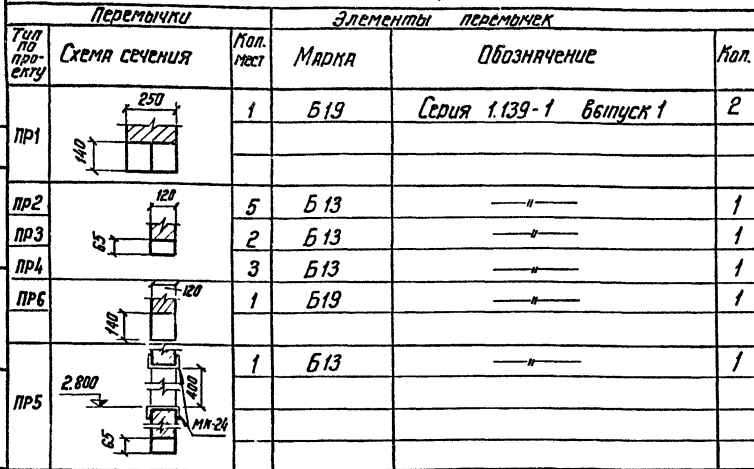 Перемычки Элементы перемычек
Тип по проекту Схема сечения Кол. мест Марка Обозначение Кол.
ПР1 250 140 1 Б19 Серия 1.139-1 Выпуск 1 2
ПР2 120 65 5 Б13 —〃— 1
ПР3 2 Б13 —〃— 1
ПР4 3 Б13 —〃— 1
ПР6 120 140 1 Б19 —〃— 1
ПР5 2.800 400 МК-24 65 1 Б13 —〃— 1